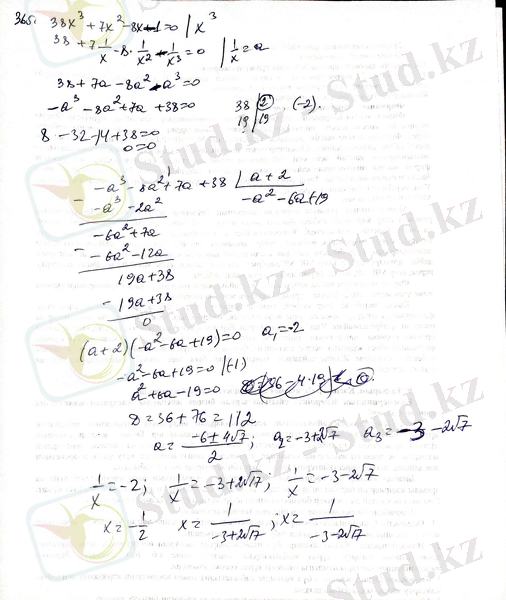 365. 38x³ + 7x² - 8x - 1 = 0 | x³
38 + 7 1/x - 8 · 1/x² - 1/x³ = 0 | 1/x = a
38 + 7a - 8a² - a³ = 0
-a³ - 8a² + 7a + 38 = 0
38 | 2 (-2).
19 | 19
8 - 32 - 14 + 38 = 0
0 = 0
-a³ - 8a² + 7a + 38 | a + 2
-a³ - 2a² -a² - 6a + 19
-6a² + 7a
-6a² - 12a
19a + 38
- 19a + 38
0
(a + 2)(-a² - 6a + 19) = 0 a₁ = -2
-a² - 6a + 19 = 0 |(-1)
a² + 6a - 19 = 0
D = 36 + 76 = 112
a = (-6 ± 4√7)/2; a₂ = -3 + 2√7 a₃ = -3 - 2√7
1/x = -2; 1/x = -3 + 2√7; 1/x = -3 - 2√7
x = -1/2 x = 1/(-3 + 2√7); x = 1/(-3 - 2√7)
Stud.kz - Stud.kz
Stud.kz - Stud.kz
Stud.kz - Stud.kz
Stud.kz